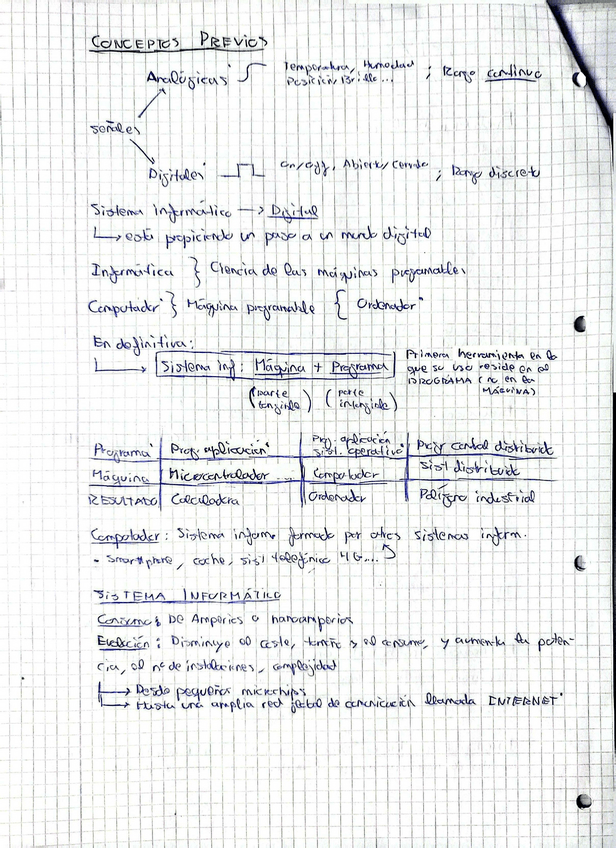 CONCEPTOS PREVIOS
Analógicas Temperatura, Humedad ; Rango continuo
Posición, Brillo...
señales
Digitales on/off, Abierto/Cerrado ; Rango discreto
Sistema informático → Digital
→ está propiciendo un paso a un mundo digital
Informática } Ciencia de las máquinas programables
Computador } Máquina programable { Ordenador
En definitiva:
→ Sistema inf: Máquina + Programa
(parte tangible) (parte intangible)
Primera herramienta en la
que su uso reside en el
PROGRAMA (no en la
MÁQUINA)
Programa | Prog. aplicación | Prog. aplicación sist. operativo | Progr control distribuido
Máquina | Microcontrolador | Computador | Sist distribuido
RESULTADO | Calculadora | Ordenador | Polígono industrial
Computador: Sistema inform formado por otros sistemas inform.
- Smartphone, coche, sist telefónico 4G...
SISTEMA INFORMÁTICO
Consumo: De Amperios a nanoamperios
Evolución: Disminuye el coste, tamaño y el consumo, y aumenta la poten-
cia, el nº de instalaciones, complejidad
→ Desde pequeños microchips
→ Hasta una amplia red global de comunicación llamada INTERNET